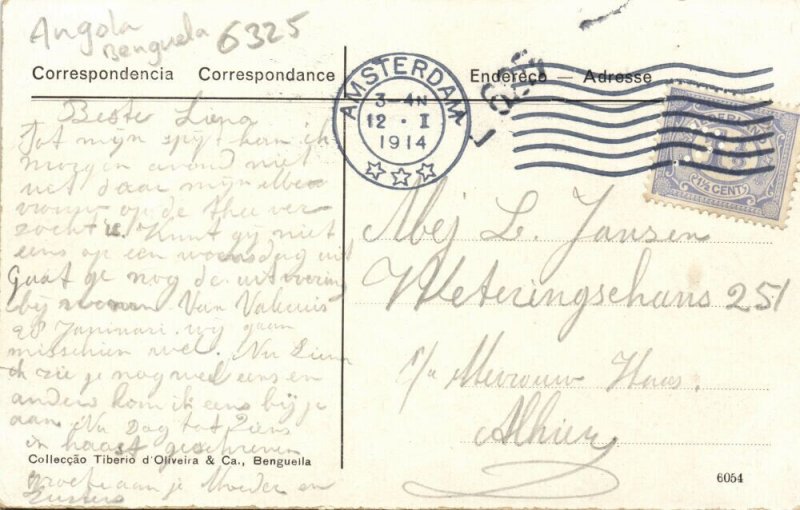 Angola
Benguela 6325
Correspondencia Correspondance
Endereço — Adresse
AMSTERDAM
3-4N
12 · I
1914
NEDERLAND
1½ CENT
Beste Liena
Tot mijn spijt kan ik
morgen avond niet
uit daar mijn Me
vrouw op de thee ver
zocht is. Kunt gij niet
eens op een woensdag uit
Gaat je nog de uitvoering
bij Van
wij gaan
misschien wel. Nu Liena
ik zie je nog wel eens en
anders kom ik eens bij je
aan. Nu Dag tot Ziens
in haast geschreven
Collecção Tiberio d'Oliveira & Ca., Bengueila
groete aan je Moeder en
Zusters
Mej L. Jansen
Weteringschans 251
p/a Mevrouw Haas.
Alhier
6054